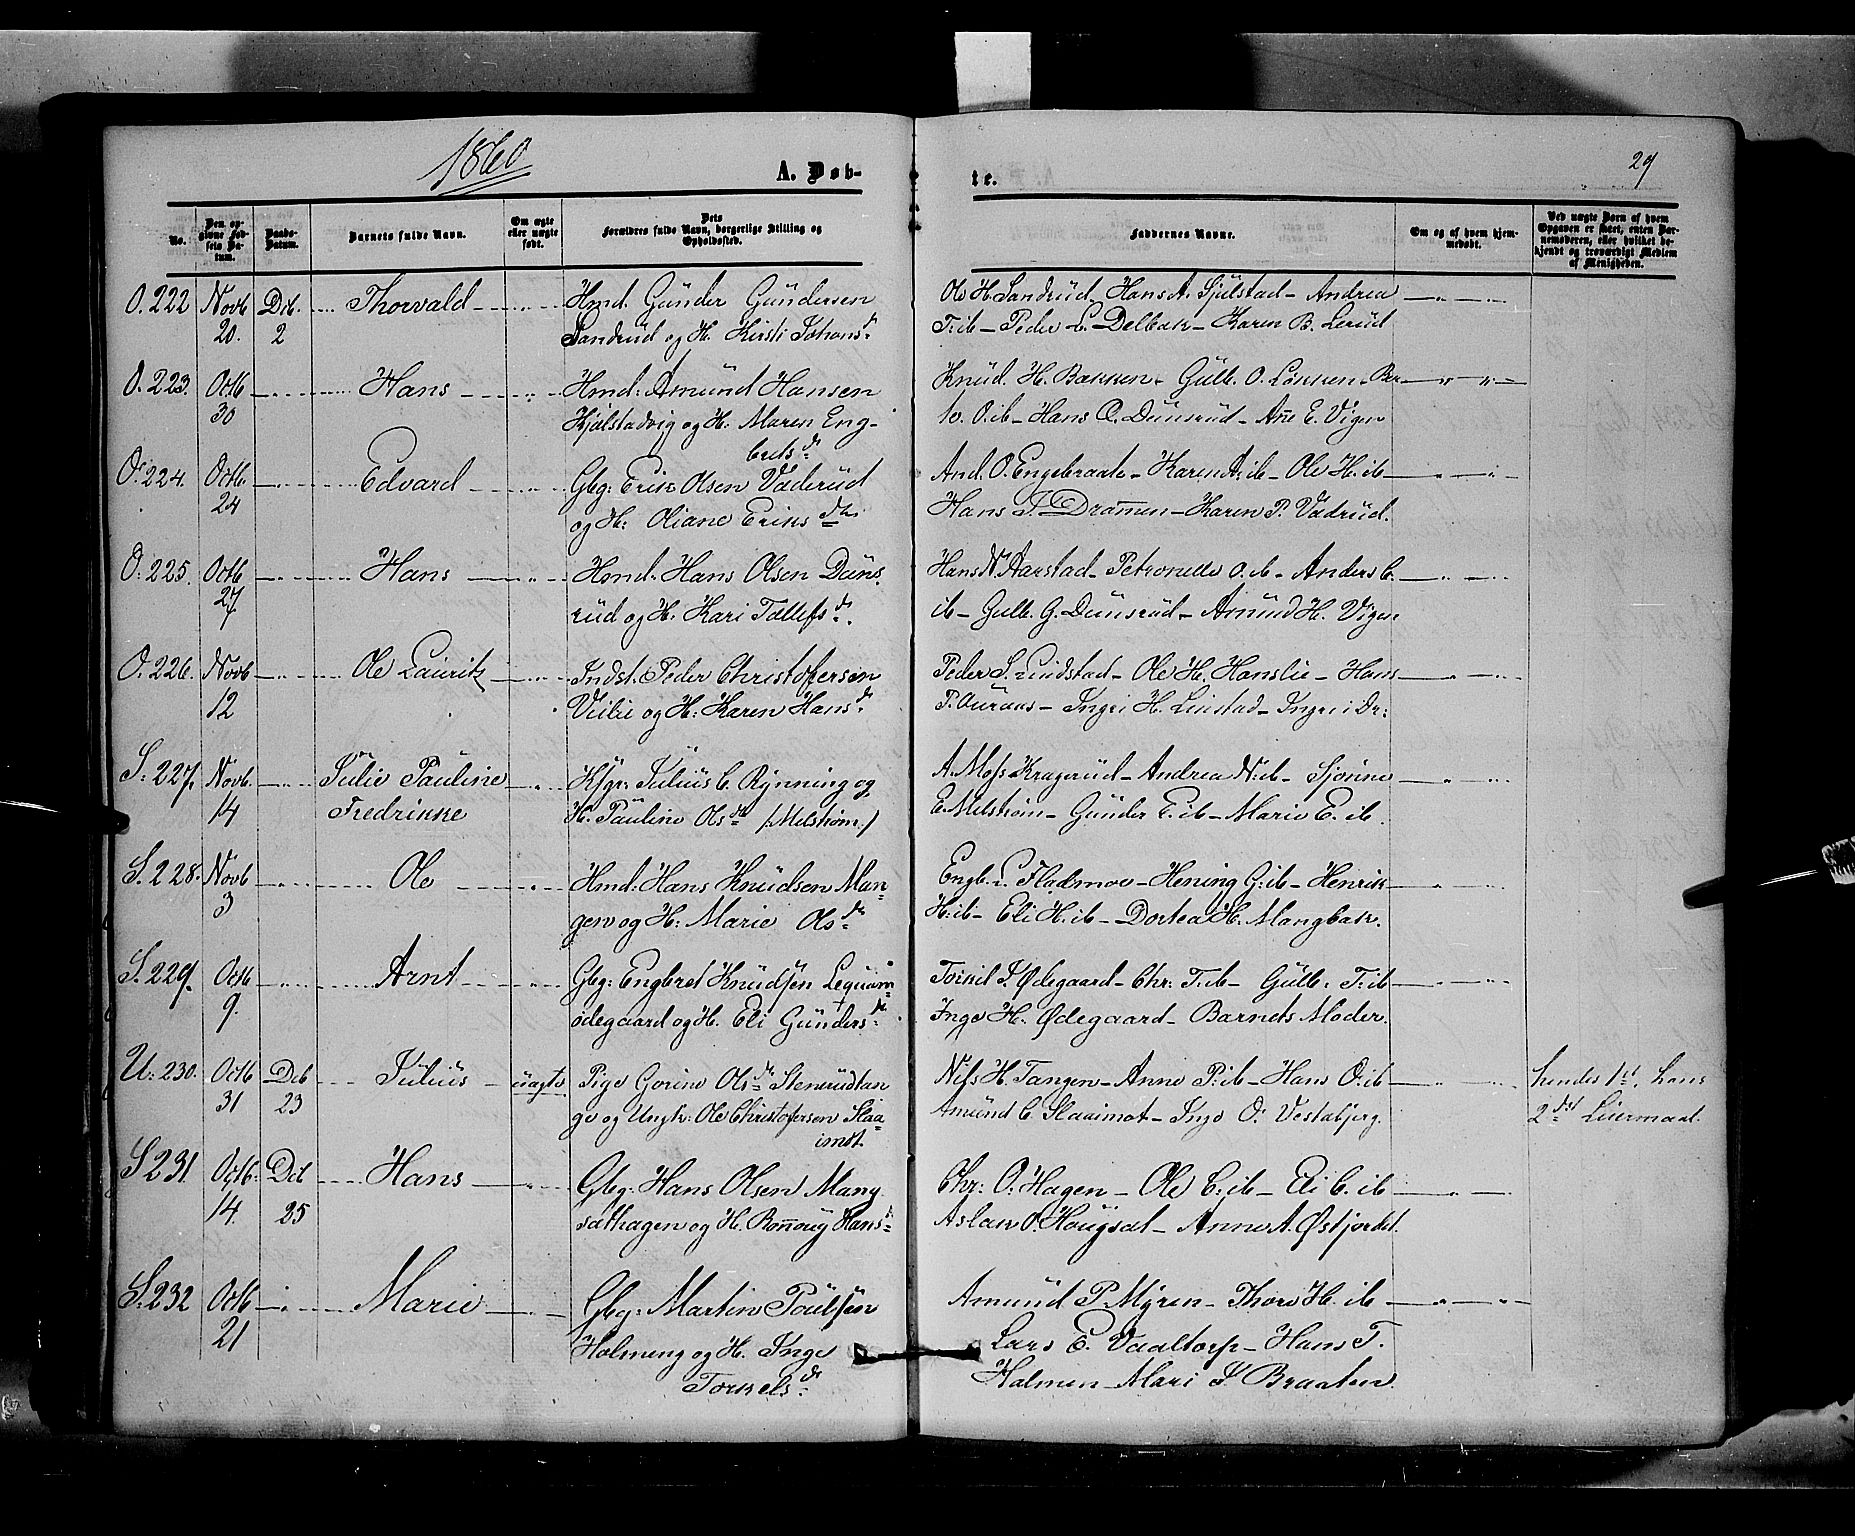 1860
A. Døb-
te.
29
No.
Den opgivne Fødsels Datum.
Daabs-Datum.
Barnets fulde Navn.
Om ægte eller uægte født.
Dets Forældres fulde Navn, borgerlige Stilling og Opholdssted.
Faddernes Navne.
Om og af hvem hjemmedøbt.
Ved uægte Børn af hvem Opgaven er skeet, enten Barnemoderen, eller hvilket bekjendt og troværdigt Medlem af Menigheden.
O. 222 Novb 20. Dcb. 2 Thorvald
Hmd. Gunder Gundersen
Sandrud og H. Kirsti Johansd.
Ole H. Sandrud Hans A. Sjulstad - Andrea
T. ib - Peder C. Delbak - Karen B. Lerud
O. 223. Octb 30 Hans
Hmd: Amund Hansen
Hjälstadvig og H: Maren Eng-
bretsd.
Knud. H. Bakken - Gulb. O. Løkken - Ber
O. ib - Hans O. Dunsrud - Ane E. Vigen
O. 224. Octb. 24 Edvard
Gbg: Erik Olsen Vaderud
og H: Oliane Eriksdtr
And. O. Engebraate - Karen A. ib - Ole H. ib
Hans J. Dramen - Karen P. Vadrud.
O. 225. Octb 27 Hans
Hmd: Hans Olsen Duns
rud og H. Kari Tollefsd.
Hans N. Aarstad - Petronelle O. ib - Anders C.
ib - Gulb. G. Dunsrud - Amund H. Vigen
O. 226. Novb 12 Ole Lauritz
Indst. Peder Christofersen
og H: Karen Hansd.
Peder S. Lindstad - Ole H. Hanslie - Hans
P. - Ingri H. Linstad - Ingri Dr:
S. 227. Novb. 14 Julie Pauline
Fredrikke
Kfgr: Julius C. Rynning og
H. Pauline Olsd /: Melstrøm :/
A. Moss Kragerud - Andrea N. ib - Sjorine
E. Melstrøm - Gunder E. ib - Marie E. ib.
S. 228. Novb 3 Ole
Hmd: Hans Knudsen Man
gen og H: Marie Olsd.
Engb. Fladmoe - Hening G: ib - Henrik
H: ib - Eli H. ib - Dortea H. Mangbak.
S. 229. Octb 9. Arnt
Gbg: Engbret Knudsen Lequam
ødegaard og H. Eli Gundersd.
Torkil J. Ødegaard - Chr: T. ib - Gulb: T: ib
Inge H. Ødegaard - Barnets Moder.
U: 230. Octb 31 Dcb 23 Julius uægte
Pige Gorine Olsd Stenerudtan
ge og Ungk: Ole Christofersen Slaa
imot.
Nils H. Tangen - Anne P: ib - Hans O: ib
Amund C. Slaaimot - Inge O. Vestabjerg.
hendes 1st, hans
2det Leiermaal.
S 231 Octb: 14. Dcb 25 Hans
Gbg: Hans Olsen Mang
sæthagen og H. Ronnoug Hansd
Chr: O. Hagen - Ole C. ib - Eli C. ib
Aslak O. Hougsat - Anne A. Østjordet.
S. 232 Octb 21 Marie
Gbg: Martin Poulsen
Holmeng og H. Inge
Torkelsd.
Amund P. Myren - Thore H. ib
Lars E. Vaaltorp - Hans T.
Holmen - Mari J. Braaten.